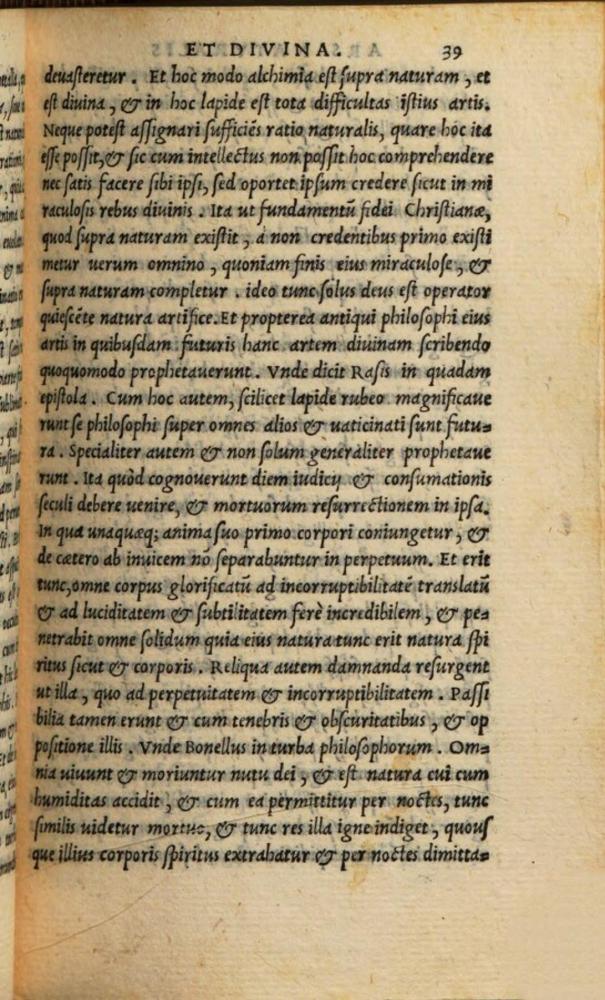 ET DIVINA. 39
deuasteretur. Et hoc modo alchimia est supra naturam, et
est diuina, & in hoc lapide est tota difficultas istius artis.
Neque potest assignari sufficiẽs ratio naturalis, quare hoc ita
esse possit, & sic cum intellectus non possit hoc comprehendere
nec satis facere sibi ipsi, sed oportet ipsum credere sicut in mi
raculosis rebus diuinis. Ita ut fundamentũ fidei Christianæ,
quod supra naturam existit, á non credentibus primo existi
metur uerum omnino, quoniam finis eius miraculose, &
supra naturam completur. ideo tunc solus deus est operator
quiescẽte natura artifice. Et propterea antiqui philosophi eius
artis in quibusdam futuris hanc artem diuinam scribendo
quoquomodo prophetauerunt. Vnde dicit Rasis in quadam
epistola. Cum hoc autem, scilicet lapide rubeo magnificaue
runt se philosophi super omnes alios & uaticinati sunt futu=
ra. Specialiter autem & non solum generaliter prophetaue
runt. Ita quòd cognouerunt diem iudicij & consumationis
seculi debere uenire, & mortuorum resurrectionem in ipsa.
In qua unaquæq; anima suo primo corpori coniungetur, &
de cætero ab inuicem nõ separabuntur in perpetuum. Et erit
tunc, omne corpus glorificatũ ad incorruptibilitatẽ translatũ
& ad luciditatem & subtilitatem ferè incredibilem, & pe=
netrabit omne solidum quia eius natura tunc erit natura spi
ritus sicut & corporis. Reliqua autem damnanda resurgent
ut illa, quo ad perpetuitatem & incorruptibilitatem. Passi
bilia tamen erunt & cum tenebris & obscuritatibus, & op
positione illis. Vnde Bonellus in turba philosophorum. Om=
nia uiuunt & moriuntur nutu dei, & est natura cui cum
humiditas accidit, & cum ea permittitur per noctes, tunc
similis uidetur mortuo, & tunc res illa igne indiget, quous
que illius corporis spiritus extrahatur & per noctes dimitta=